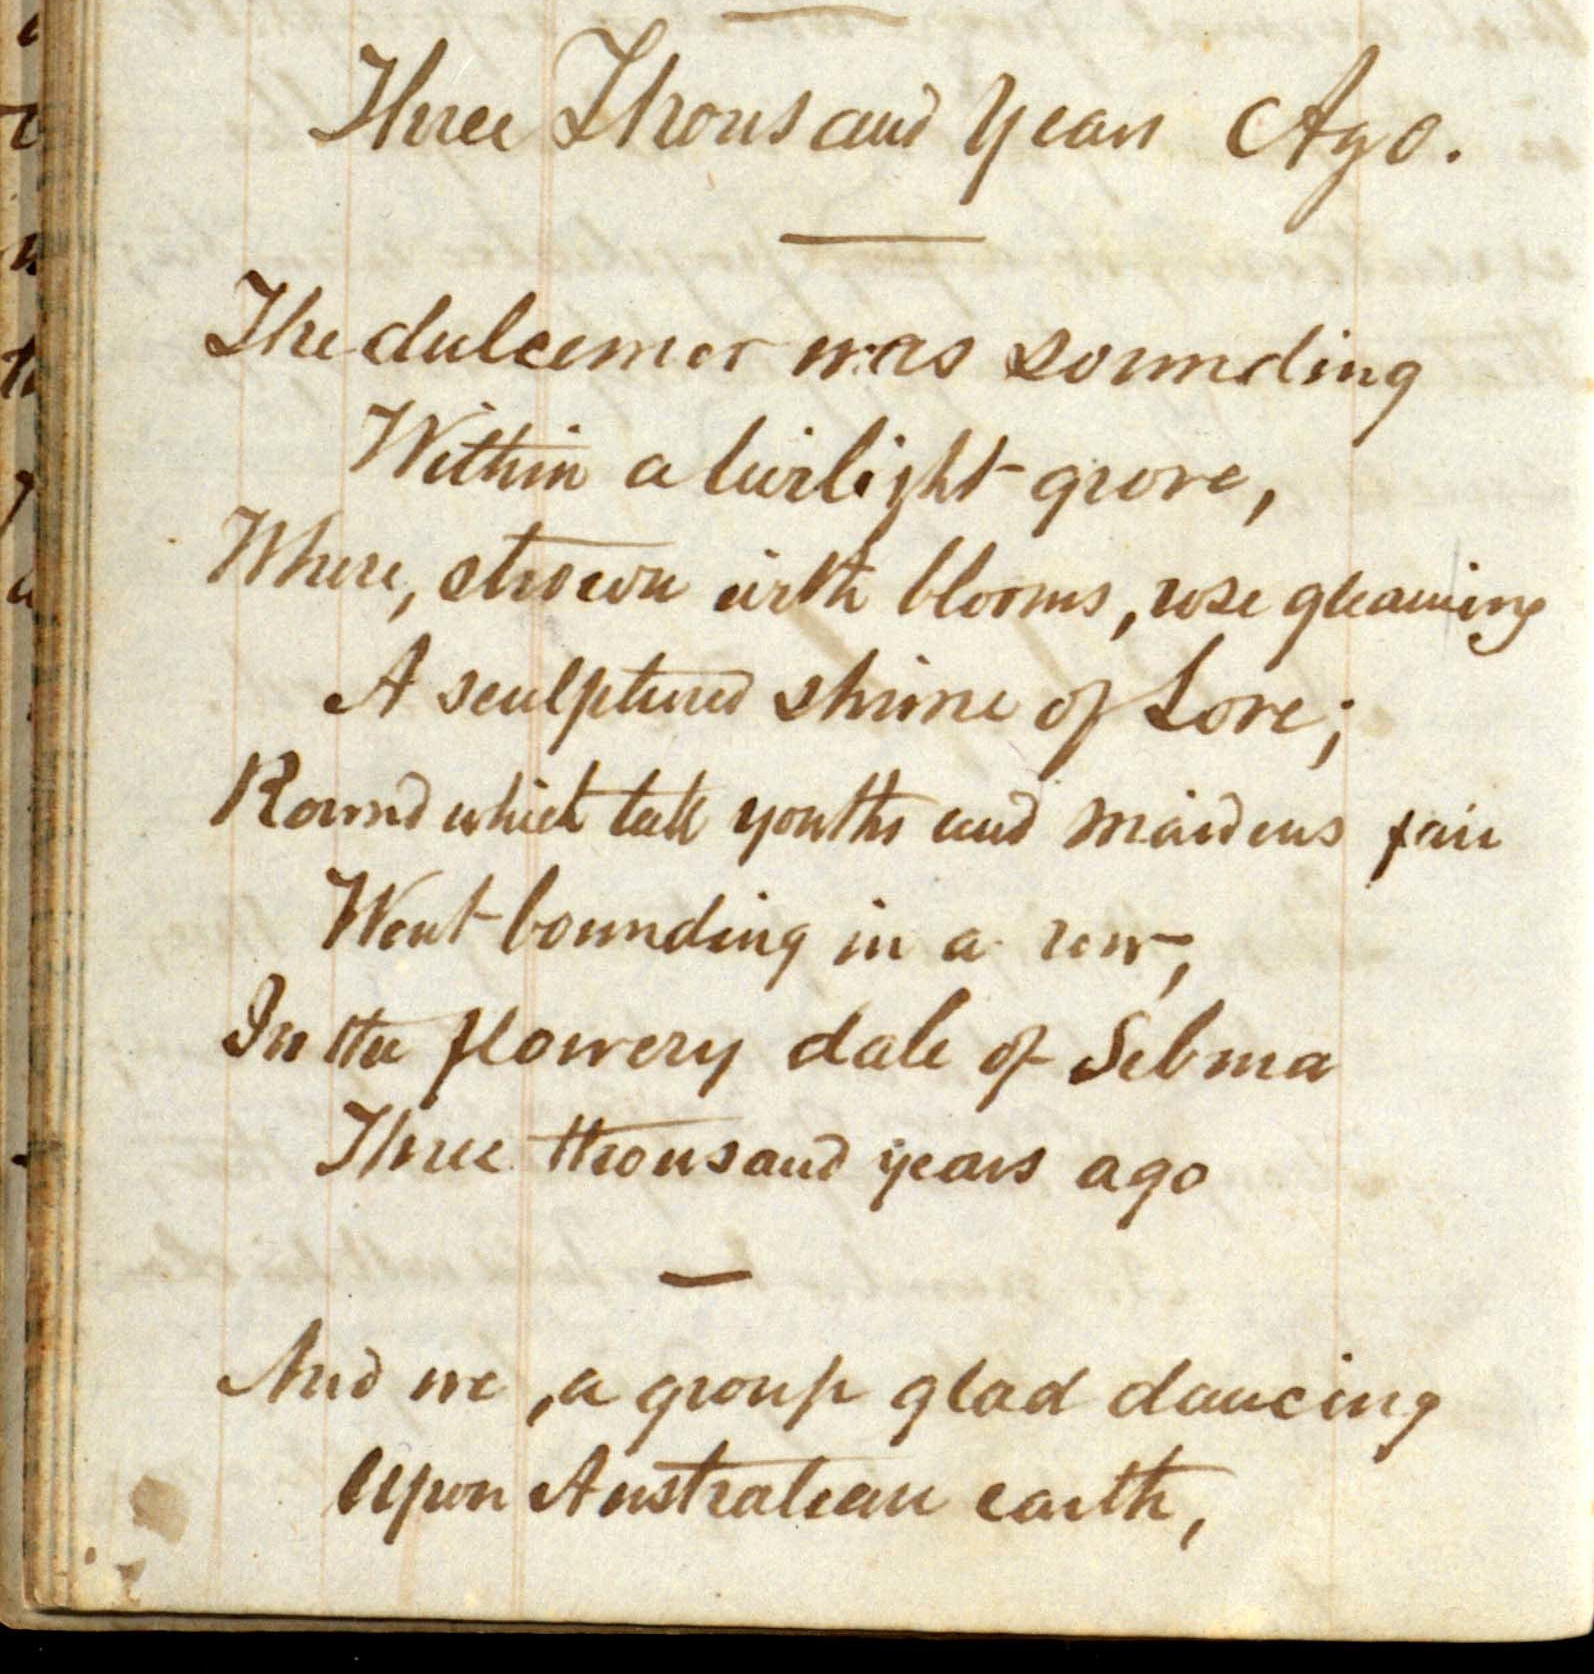 Three Thousand Years Ago.
The dulcemer was sounding
Within a twilight grove,
Where, strown with blooms, rose gleaming
A sculptured shrine of Love;
Round which tall youths and maidens fair
Went bounding in a row,
In the flowery dale of Sebma
Three thousand years ago
And we, a group glad dancing
Upon Australian earth,